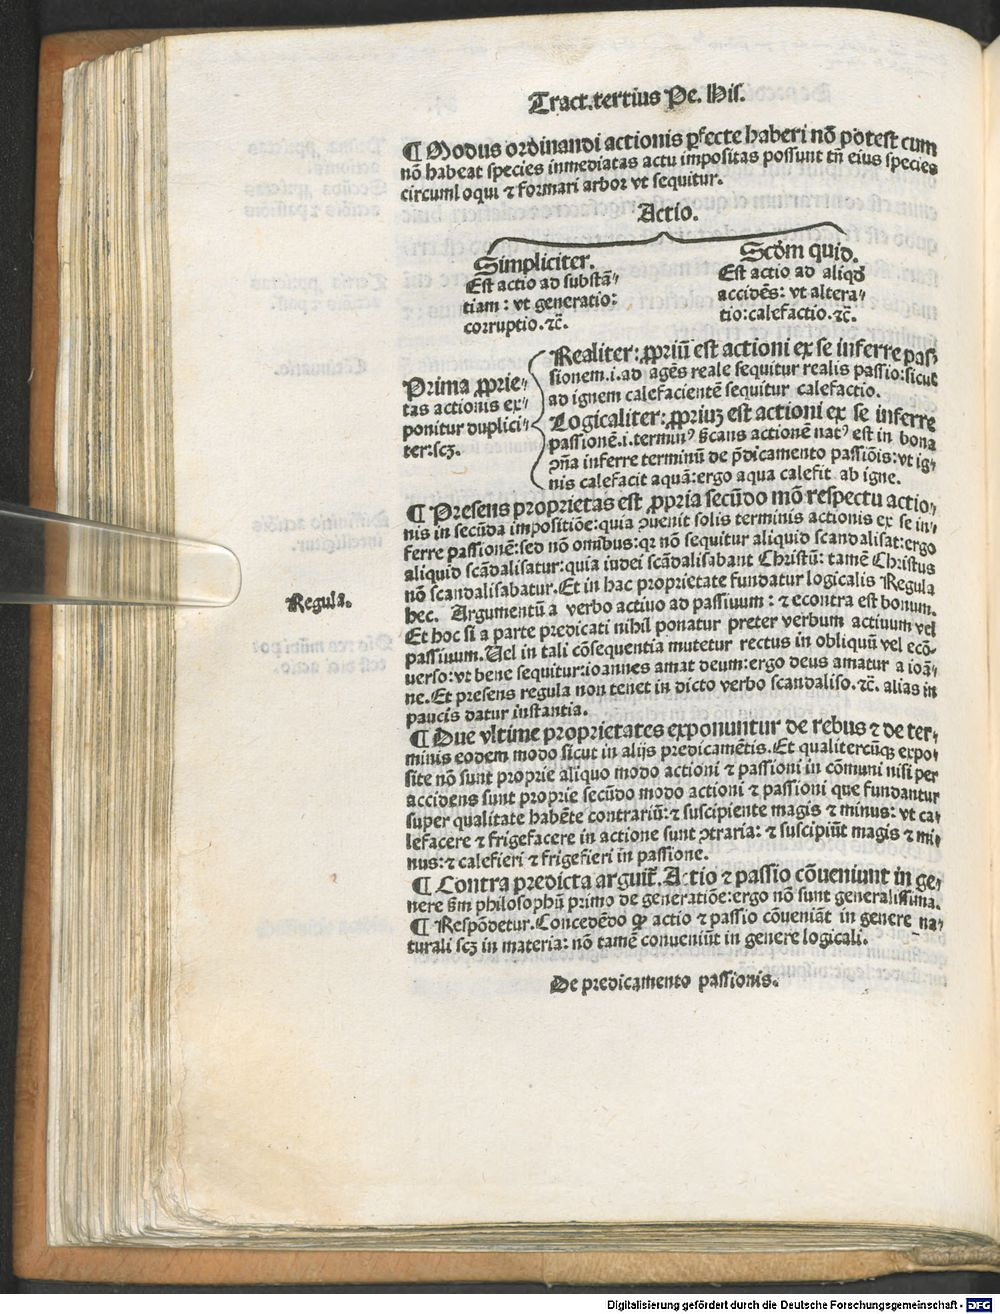 Tract.tertius Pe. His.
¶ Modus ordinandi actionis ꝑfecte haberi nō potest cum
nō habeat species inmediatas actu impositas possunt tn̄ eius species
circumloqui ⁊ formari arbor vt sequitur.
Actio.
Simpliciter.
Est actio ad substā⸗
tiam : vt generatio:
corruptio.⁊c̄.
Scḋm quid.
Est actio ad aliqḋ
accidēs: vt altera⸗
tio:calefactio.⁊c̄.
Prima ꝓprie⸗
tas actionis ex⸗
ponitur duplici⸗
ter:scꝫ.
Realiter: ꝓpriū est actioni ex se inferre pas
sionem.i.ad agēs reale sequitur realis passio:sicut
ad ignem calefacientē sequitur calefactio.
Logicaliter: ꝓpriuꝫ est actioni ex se inferre
passionē.i.terminꝰ ſ̄cans actionē natꝰ est in bona
ꝯn̄a inferre terminū de p̄dicamento passiōis:vt ig⸗
nis calefacit aquā:ergo aqua calefit ab igne.
¶ Presens proprietas est ꝓpria secūdo mō respectu actio⸗
nis in secūda impositiōe:quia ꝯuenit solis terminis actionis ex se in⸗
ferre passionē:sed nō omībus:qꝛ nō sequitur aliquid scandalisat:ergo
aliquid scādalisatur:quia iudei scādalisabant Christū: tamē Christus
nō scandalisabatur. Et in hac proprietate fundatur logicalis Regula
hec. Argumentū a verbo actiuo ad passiuum: ⁊ econtra est bonum.
Et hoc si a parte predicati nihil ponatur preter verbum actiuum vel
passiuum. Uel in tali cōsequentia mutetur rectus in obliquū vel ecō⸗
uerso:vt bene sequitur:ioannes amat deum:ergo deus amatur a ioā⸗
ne. Et presens regula non tenet in dicto verbo scandaliso.⁊c̄. alias in
paucis datur instantia.
Regula.
¶ Due vltime proprietates exponuntur de rebus ⁊ de ter⸗
minis eodem modo sicut in alijs predicamētis. Et qualitercūqꝫ expo⸗
site nō sunt proprie aliquo modo actioni ⁊ passioni in cōmuni nisi per
accidens sunt proprie secūdo modo actioni ⁊ passioni que fundantur
super qualitate habēte contrariū:⁊ suscipiente magis ⁊ minus: vt ca⸗
lefacere ⁊ frigefacere in actione sunt ꝯtraria: ⁊ suscipiūt magis ⁊ mi⸗
nus:⁊ calefieri ⁊ frigefieri in passione.
¶ Contra predicta arguit̄. Actio ⁊ passio cōueniunt in ge⸗
nere ẜm philosophū primo de generatiōe:ergo nō sunt generalissima.
¶ Respōdetur. Concedēdo ꝙ actio ⁊ passio cōueniāt in genere na⸗
turali scꝫ in materia: nō tamē conueniūt in genere logicali.
De predicamento passionis.
Digitalisierung gefördert durch die Deutsche Forschungsgemeinschaft - DFG